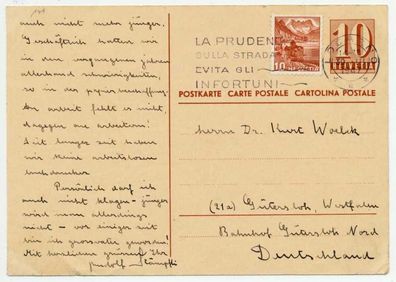 auch nicht mehr jünger.
Geschäftlich hatten wir
in den vergangenen jahren
allerhand schwierigkeiten,
so in der papierbeschaffung.
An arbeit fehlt es nicht,
dagegen an arbeitern!
Seit langer zeit haben
wir keine arbeitslosen
buchdrucker
Persönlich darf ich
auch nicht klagen - jünger
wird man allerdings
nicht - vor einiger zeit
bin ich grossvater geworden!
Mit herzlichen grüssen Ihr
Rudolf Stämpfli
LA PRUDEN
SULLA STRADA
EVITA GLI
INFORTUNI
10
HELVETIA
10
HELVETIA
POSTKARTE CARTE POSTALE CARTOLINA POSTALE
Herrn Dr. Kurt Woelck
(21a) Gütersloh, Westfalen
Bahnhof Gütersloh Nord
Deutschland